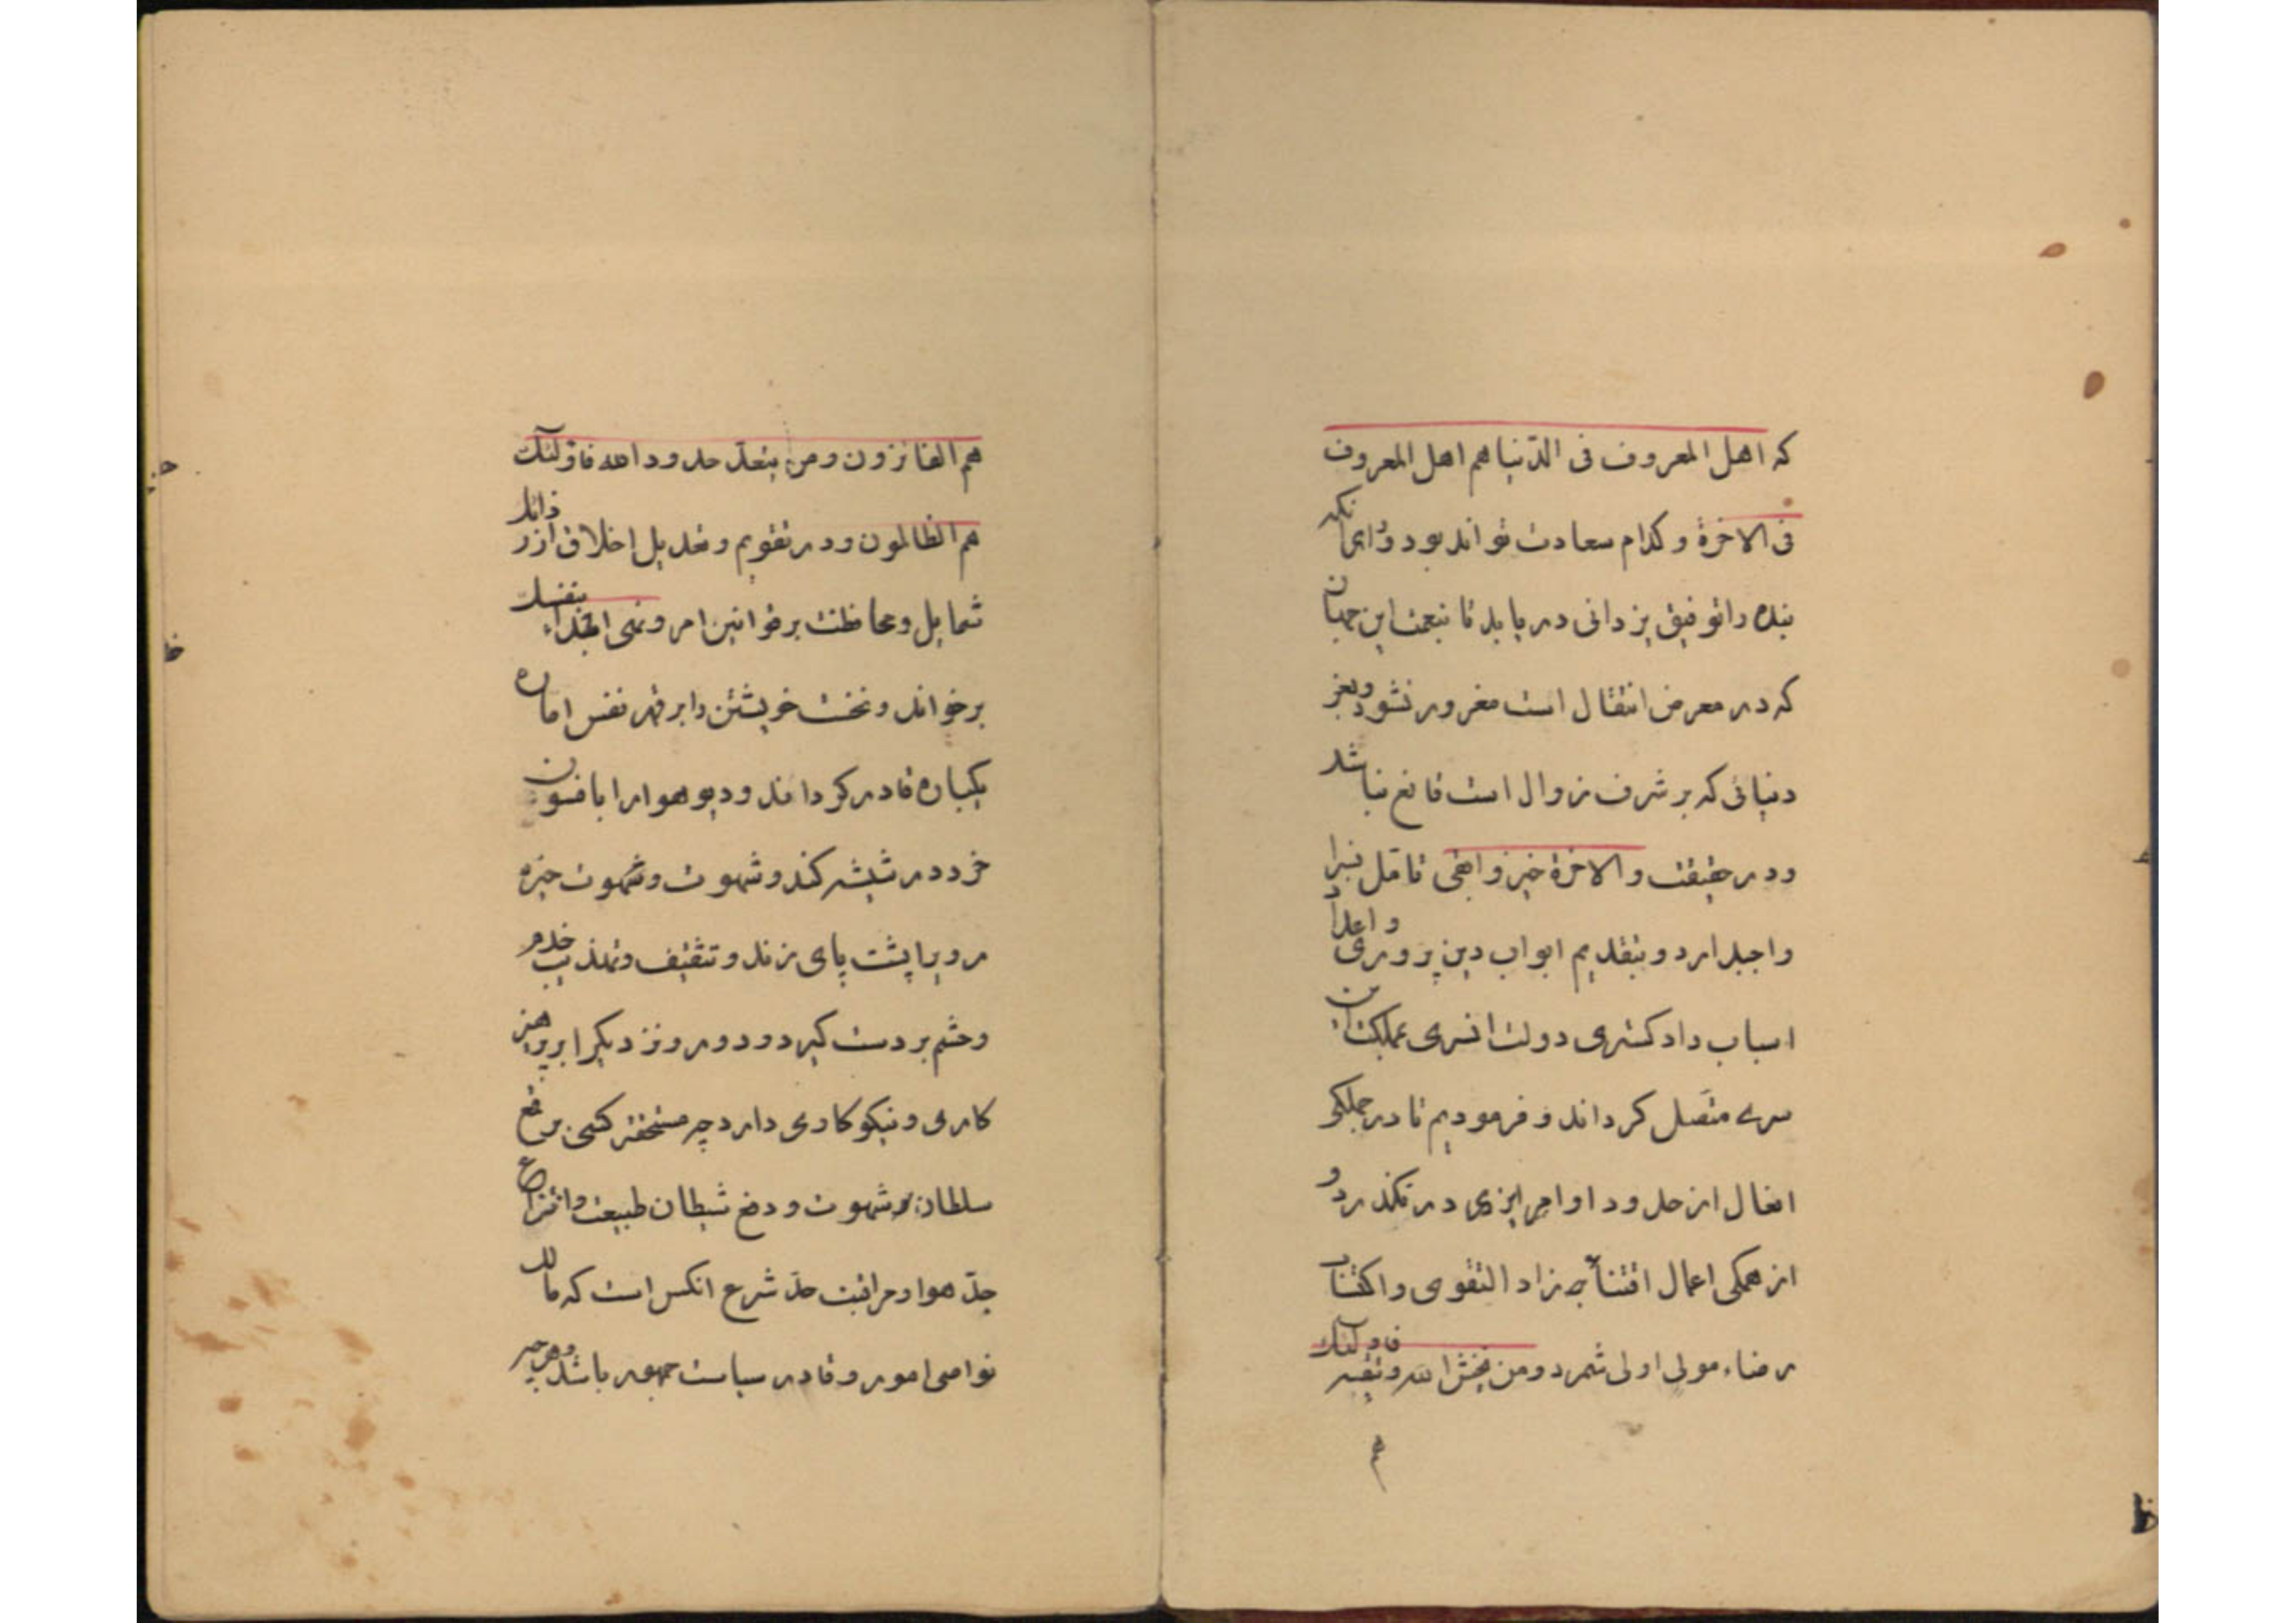 که اهل المعروف فی الدّنیا هم اهل المعروف
فی الاخرة و کدام سعادت تواند بود ورای انکه
بنده را توفیق یزدانی دریابد تا بنعمت این جهان
که در معرض انتقال است مغرور نشود و بعز
دنیائی که بر شرف زوال است قانع نباشد
و در حقیقت والاخرة خیر و ابقی تامل بسزا
واجب دارد و بتقدیم ابواب دین پروری و اعداد
اسباب داد کستری دولت انسری بمملکت این
سری متصل کرداند و فرمودیم تا در جملکی
افعال از حدود اوامر ایزدی در نکذرد و
از همکی اعمال اقتناء زاد التقوی و اکتساب
رضاء مولی اولی شمرد و من یخش الله و یتقیه فاولئک
هم
هم الفائزون و من یتعدّ حدود الله فاولئک
هم الظالمون و در تقویم و تعدیل اخلاق از رذائل
شمایل و محافظت بر قوانین امر و نهی ابتداء بنفسک
برخواند و نخست خویشتن را بر قهر نفس اماره
یکباره قادر کرداند و دیو هوا را بافسون
خرد در شیشه کند و شهوت و شهوت خیره
رویرا پشت پای زند و تثقیف و تهذیب خدم
و حشم بر دست کیرد و دور و نزدیکرا بر پرهیز
کاری و نیکو کاری دارد چه مستحقتر کسی بر قمع
سلطان شهوت و دفع شیطان طبیعت و انتزاع
جذ هوا و مراقبت حدّ شرع انکس است که مالک
نواصی امور و قادر سیاست جمهور باشد و هر چه